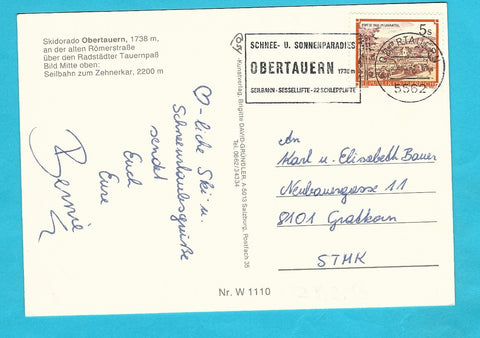 Skidorado Obertauern, 1738 m,
an der alten Römerstraße
über den Radstädter Tauernpaß
Bild Mitte oben:
Seilbahn zum Zehnerkar, 2200 m
SCHNEE- U. SONNENPARADIES
OBERTAUERN 1738 m
SEILBAHN - SESSELLIFTE - 22 SCHLEPPLIFTE
5s
OBERTAUERN
5562
♡-liche Ski u.
Schneeurlaubsgrüße
sendet
Euch
Eure
Bernie
Kunstverlag, Brigitte DAVID-GRÜNDLER, A 5013 Salzburg, Postfach 35
Tel. 0662/34134
An
Karl u. Elisabeth Bauer
Neubauergasse 11
8101 Gratkorn
STMK
Nr. W 1110